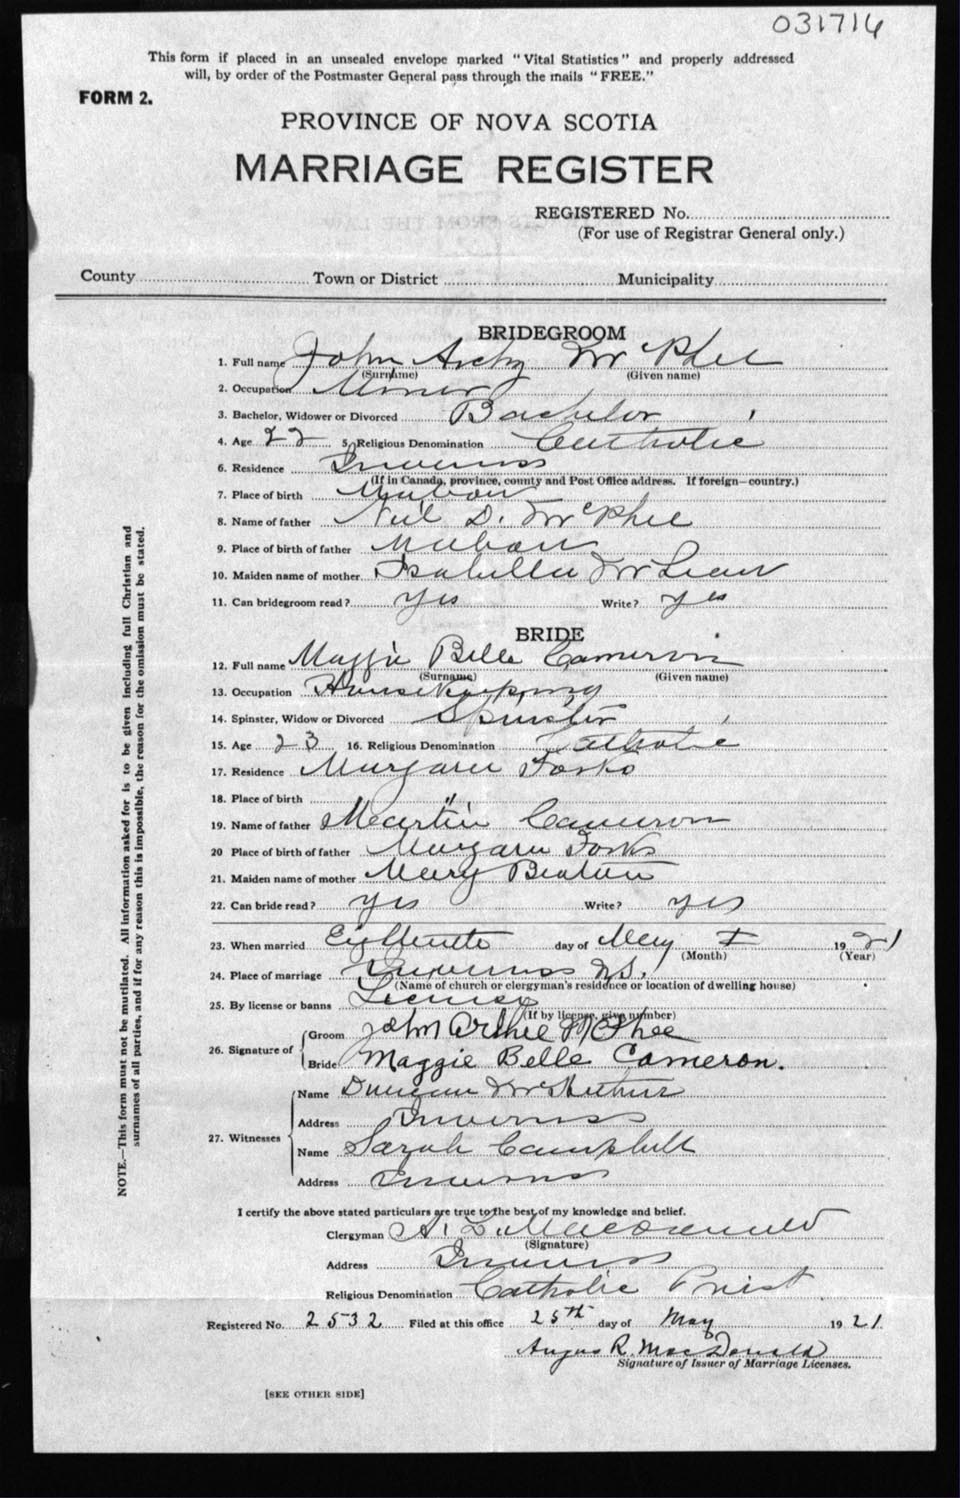 031716
This form if placed in an unsealed envelope marked "Vital Statistics" and properly addressed
will, by order of the Postmaster General pass through the mails "FREE."
FORM 2.
PROVINCE OF NOVA SCOTIA
MARRIAGE REGISTER
REGISTERED No.
(For use of Registrar General only.)
County Town or District Municipality
BRIDEGROOM
1. Full name John Archy McPhee
(Surname) (Given name)
2. Occupation Miner
3. Bachelor, Widower or Divorced Bachelor
4. Age 22 5. Religious Denomination Catholic
6. Residence Inverness
(If in Canada, province, county and Post Office address. If foreign—country.)
7. Place of birth Mabou
8. Name of father Neil D. McPhee
9. Place of birth of father Mabou
10. Maiden name of mother Isabella McLean
11. Can bridegroom read? yes Write? yes
BRIDE
12. Full name Maggie Belle Cameron
(Surname) (Given name)
13. Occupation Housekeeping
14. Spinster, Widow or Divorced Spinster
15. Age 23 16. Religious Denomination Catholic
17. Residence Margaree Forks
18. Place of birth "
19. Name of father Martin Cameron
20 Place of birth of father Margaree Forks
21. Maiden name of mother Mary Beaton
22. Can bride read? yes Write? yes
23. When married Eighteenth day of May 1921
(Month) (Year)
24. Place of marriage Inverness N.S.
(Name of church or clergyman's residence or location of dwelling house)
25. By license or banns License
(If by license, give number)
26. Signature of Groom John Archie McPhee
Bride Maggie Belle Cameron.
27. Witnesses Name Duncan McArthur
Address Inverness
Name Sarah Campbell
Address Inverness
I certify the above stated particulars are true to the best of my knowledge and belief.
Clergyman A. L. MacDonald
(Signature)
Address Inverness
Religious Denomination Catholic Priest
Registered No. 2532 Filed at this office 25th day of May 1921
Angus R. MacDonald
Signature of Issuer of Marriage Licenses.
[SEE OTHER SIDE]
NOTE.—This form must not be mutilated. All information asked for is to be given including full Christian and
surnames of all parties, and if for any reason this is impossible, the reason for the omission must be stated.